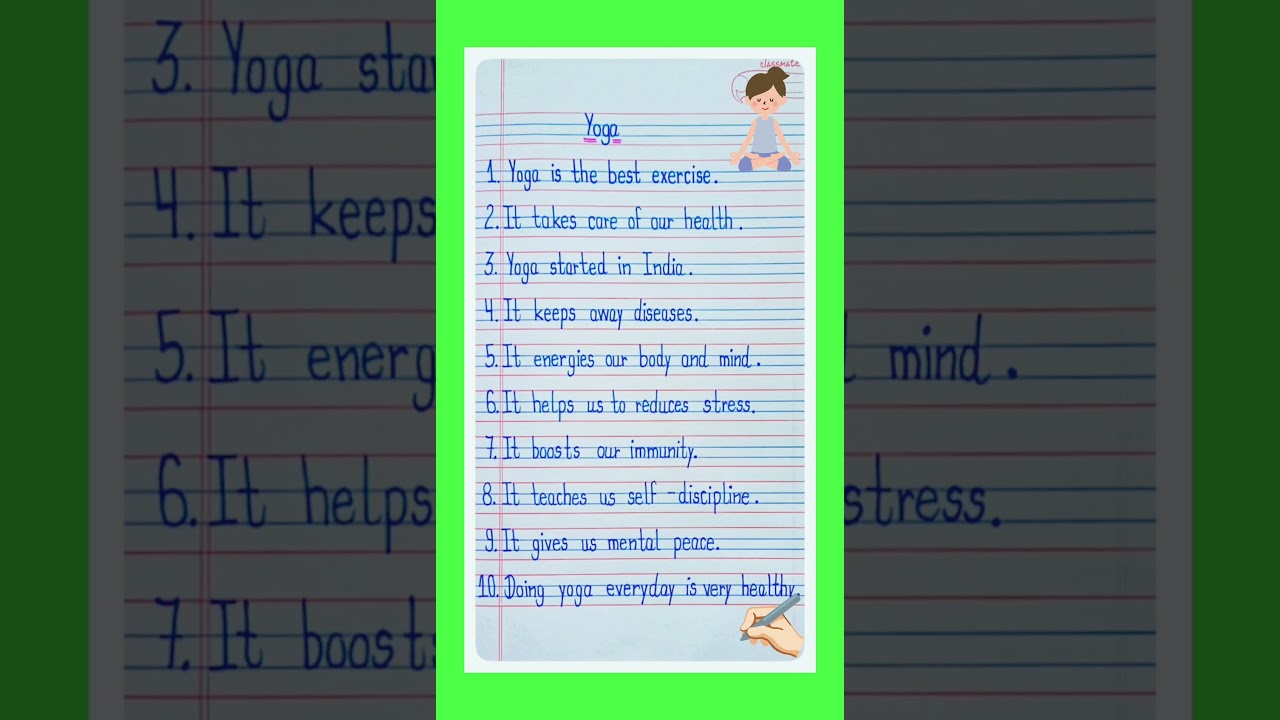 classmate
Yoga
1. Yoga is the best exercise.
2. It takes care of our health.
3. Yoga started in India.
4. It keeps away diseases.
5. It energies our body and mind.
6. It helps us to reduces stress.
7. It boosts our immunity.
8. It teaches us self-discipline.
9. It gives us mental peace.
10. Doing yoga everyday is very healthy.
3. Yoga star
4. It keeps
5. It energ
mind.
6. It helps
stress.
7. It boosts